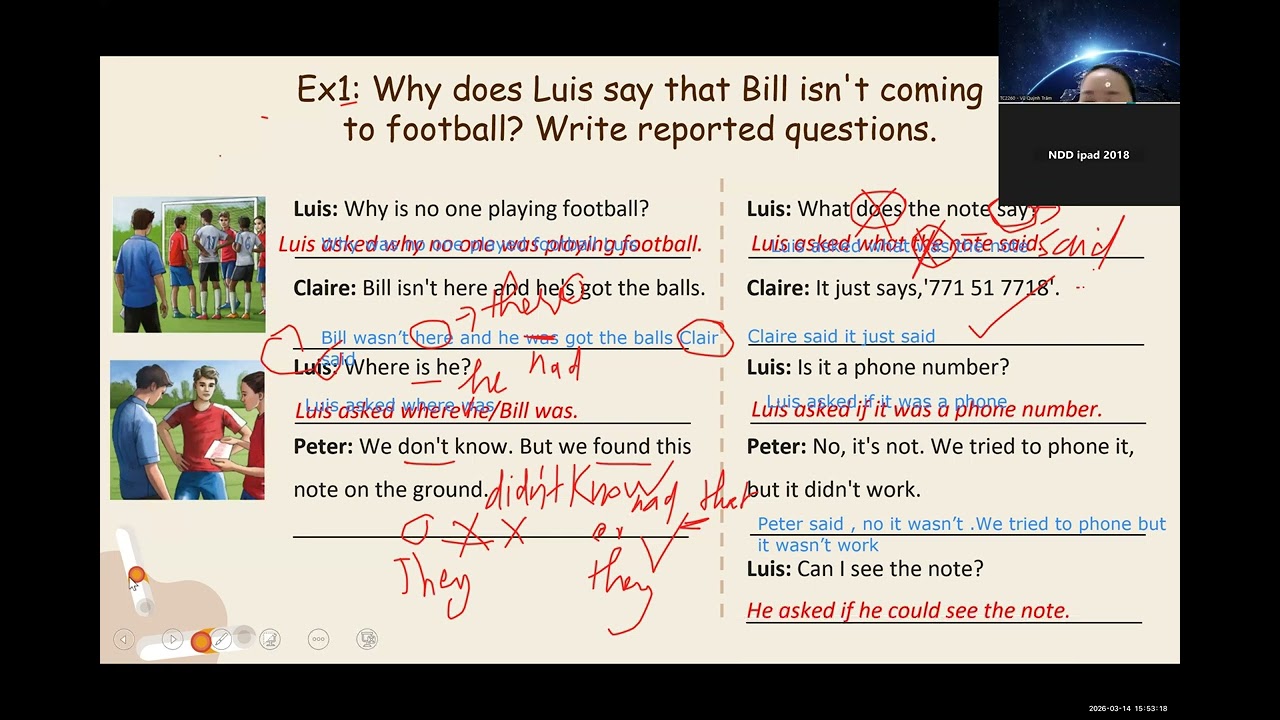 Ex1: Why does Luis say that Bill isn't coming
to football? Write reported questions.
TC2260 - Vũ Quỳnh Trâm
NDD ipad 2018
Luis: Why is no one playing football?
Luis asked why no one was playing football.
Why was no one played football Luis
Claire: Bill isn't here and he's got the balls.
there
Bill wasn't here and he was got the balls Clair
said
had
Luis: Where is he?
he
Luis asked where was
Luis asked where he/Bill was.
Peter: We don't know. But we found this
note on the ground.
didn't know
had
that
or
They
they
Luis: What does the note say?
Luis asked what the note said.
Luis asked what was the note
said
Claire: It just says,'771 51 7718'.
Claire said it just said
Luis: Is it a phone number?
Luis asked if it was a phone
Luis asked if it was a phone number.
Peter: No, it's not. We tried to phone it,
but it didn't work.
Peter said , no it wasn't .We tried to phone but
it wasn't work
Luis: Can I see the note?
He asked if he could see the note.
2026-03-14 15:53:18